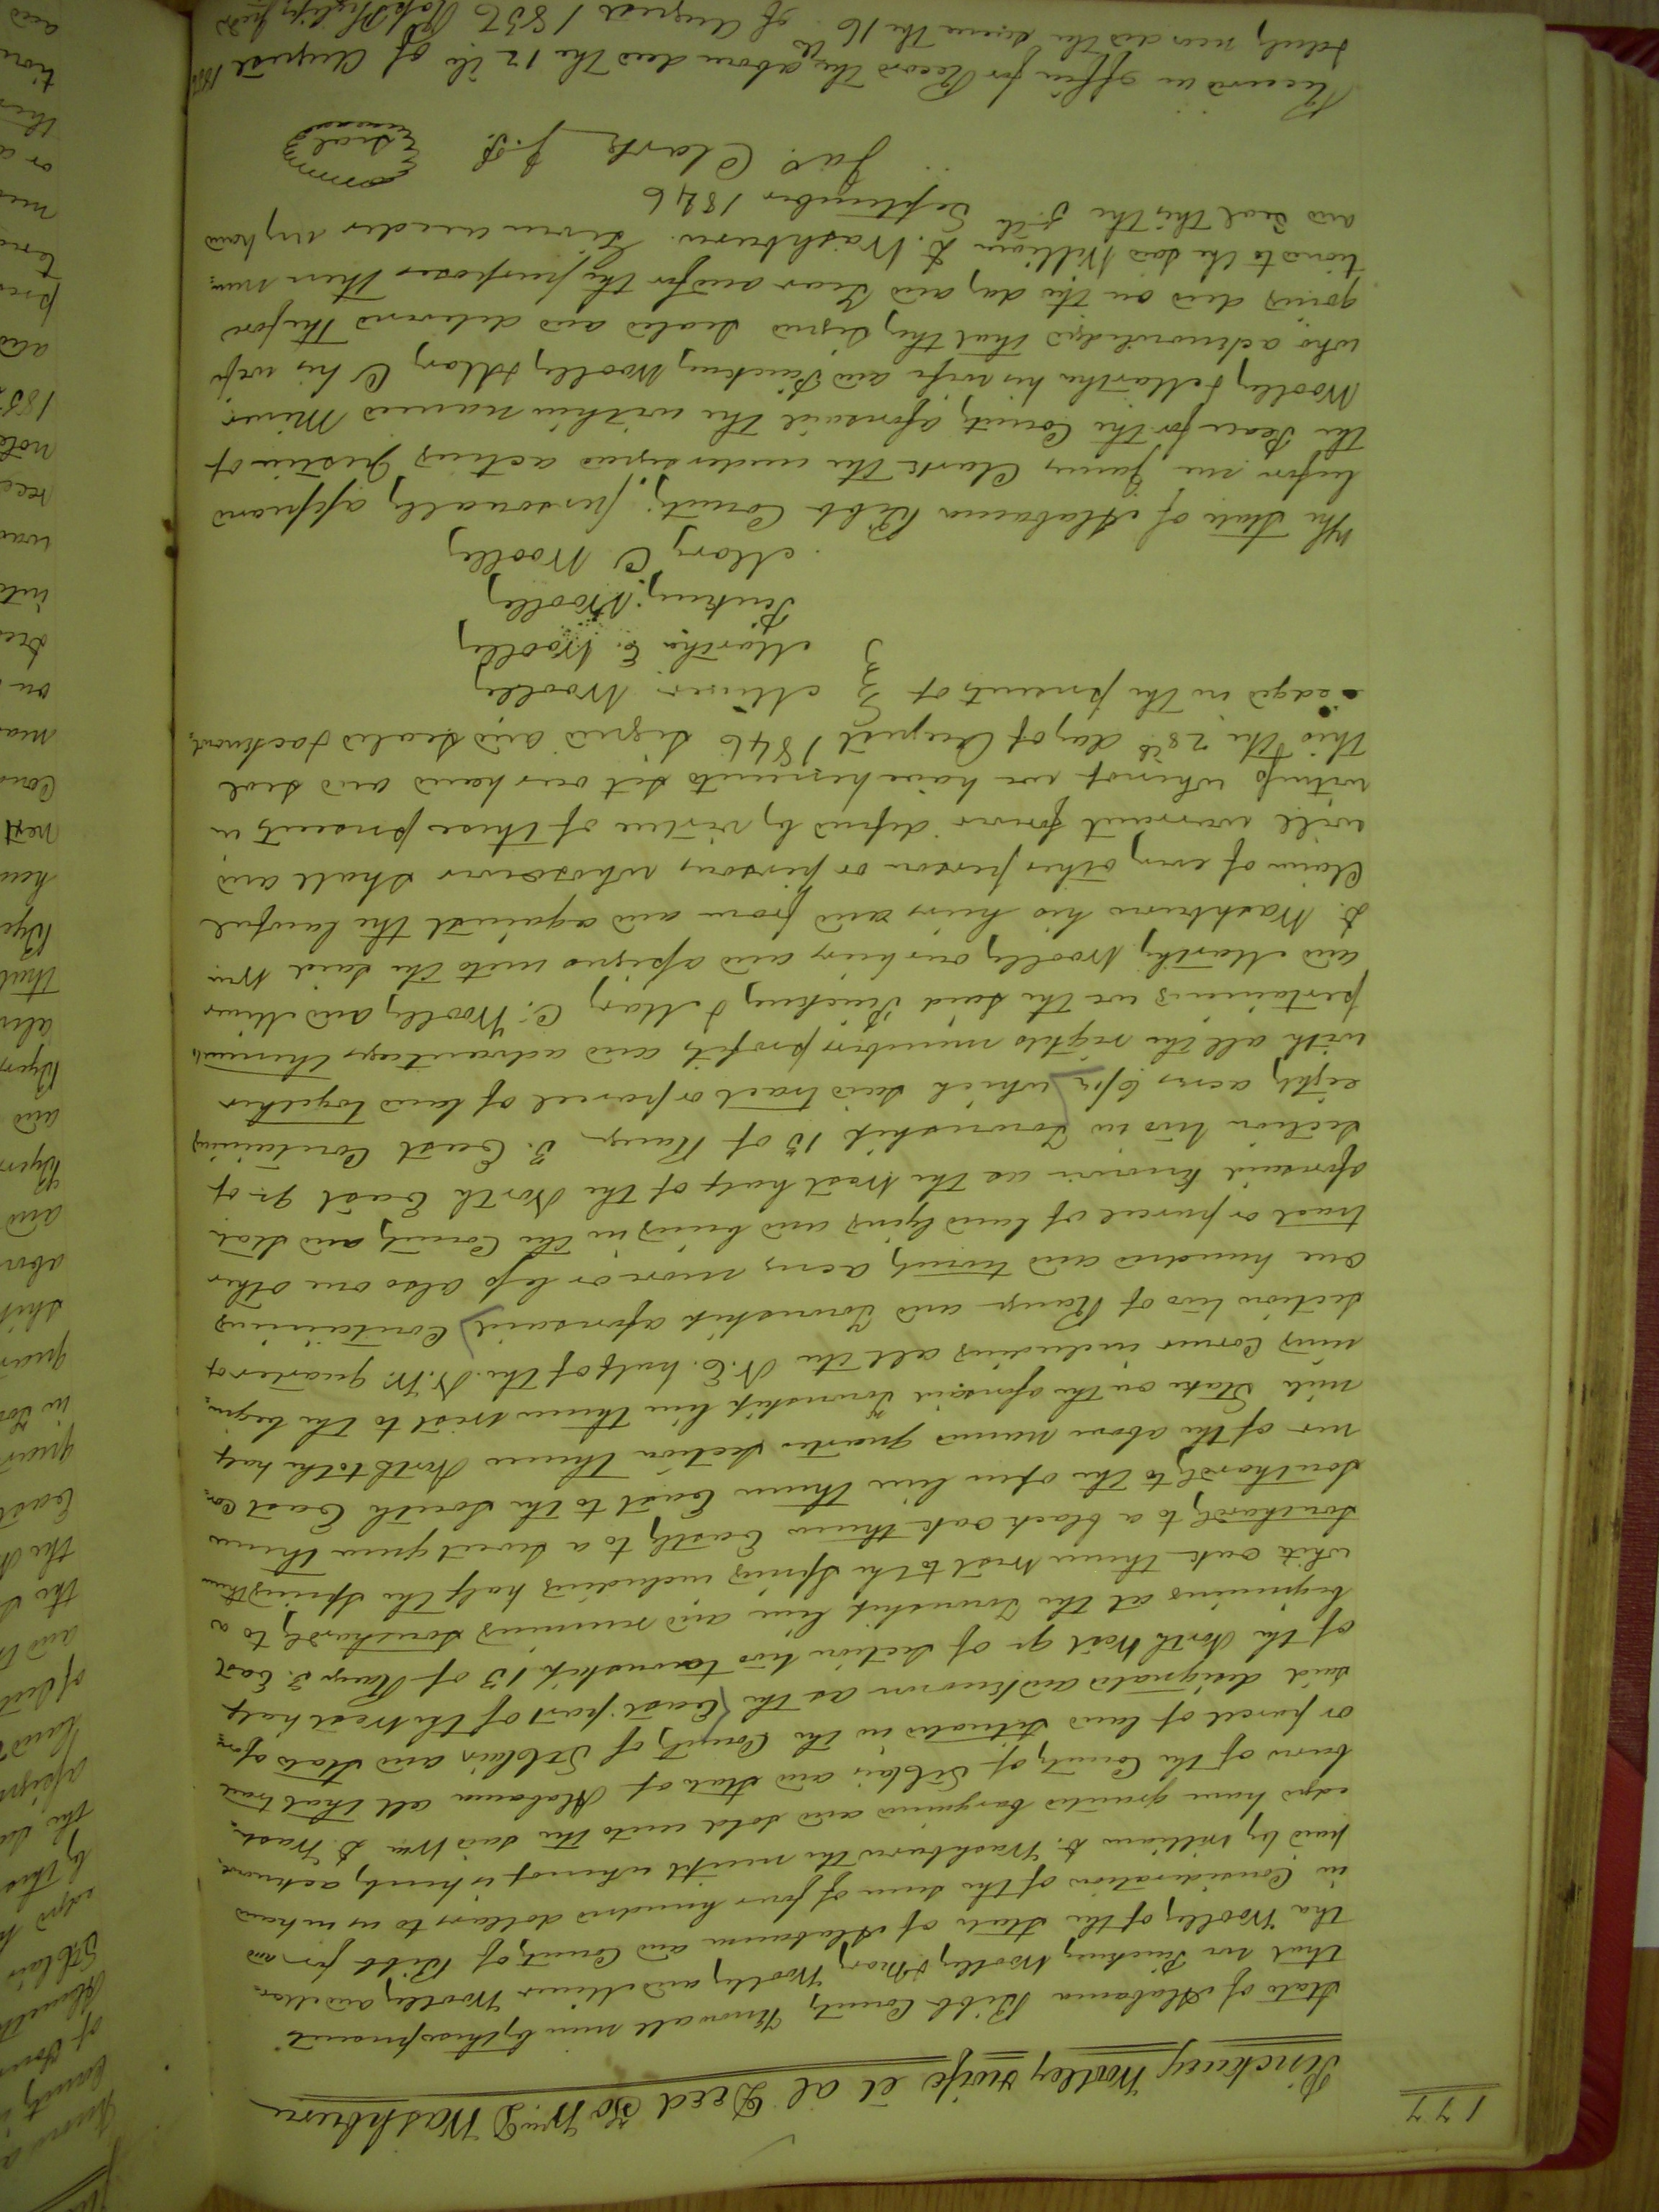 177
Pinckney Woolley & wife et al Deed To Wm D Washburn
State of Alabama Bibb County Know all men by these presents
that we Pinckney Woolley & Mary Woolley and Miner Woolley and Mar-
tha Woolley of the State of Alabama and County of Bibb for and
in Consideration of the sum of four hundred dollars to us in hand
paid by William D. Washburn the receipt whereof is hereby acknowl-
edged have granted bargained and sold unto the said Wm D. Wash-
burn of the County of St Clair and State of Alabama all that tract
or parcel of land situated in the County of St Clair and State afore-
said designated and known as the East part of the West half
of the North West qr of Section two township 13 of Range 3. East
beginning at the Township line and running Southardly to a
white oak thence West to the Spring including half the Spring thence
Southardly to a black oak thence Eastly to a sweet gum thence
Southardly to the open line thence East to the South East Cor-
ner of the above named quarter section thence North to the half
mile Stake on the aforesaid Township line thence West to the begin-
ning Corner including all the N. E. half of the N. W. quarter of
Section two of Range and Township aforesaid Containing
one hundred and twenty acres more or less also one other
tract or parcel of land lying and being in the County and State
aforesaid Known as the West half of the North East qr of
Section two in Township 13 of Range 3. East Containing
eighty acres 6/10 which said tract or parcel of land together
with all the rights members profits and advantages thereunto
pertaining we the said Pinckney & Mary C. Woolley and Miner
and Martha Woolley our heirs and assigns unto the said Wm
D. Washburn his heirs and from and against the lawful
Claim of every other person or persons whosoever shall and
will warrant forever defend by virtue of these presents in
witness whereof we have hereunto set our hand and seal
This the 28th day of August 1846 Signed and Sealed & acknowl-
edged in the presents of Miner Woolley
Martha E. Woolley
Pinckney Woolley
Mary C Woolley
The State of Alabama Bibb County, personally appeared
before me James Clark the undersigned acting Justice of
the Peace for the County aforesaid the within named Miner
Woolley & Martha his wife and Pinckney Woolley & Mary C his wife
who acknowledged that they signed sealed and delivered the fore
going deed on the day and Year and for the purposes therein men-
tiond to the said William D. Washburn. Given under my hand
and seal this the 5th September 1846
Jas. Clark J. P. seal
Received in office for Record the above deed the 12th of August
duly recorded the same the 16 of August 1856